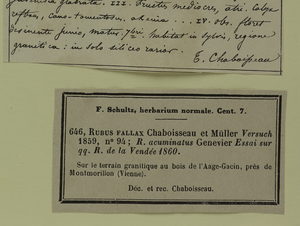 glabrata. III. Fructus mediocres, atri. Calyx
reflexus, cano-tomentosus,
junio, matur. 7bri. habitat in sylvis, regione
granitica: in solo silicea rarior.
T. Chaboisseau
F. Schultz, herbarium normale. Cent. 7.
646, RUBUS FALLAX Chaboisseau et Müller Versuch
1859, nº 94; R. acuminatus Genevier Essai sur
qq. R. de la Vendée 1860.
Sur le terrain granitique au bois de l'Aage-Gacin, près de
Montmorillon (Vienne).
Déc. et rec. Chaboisseau.